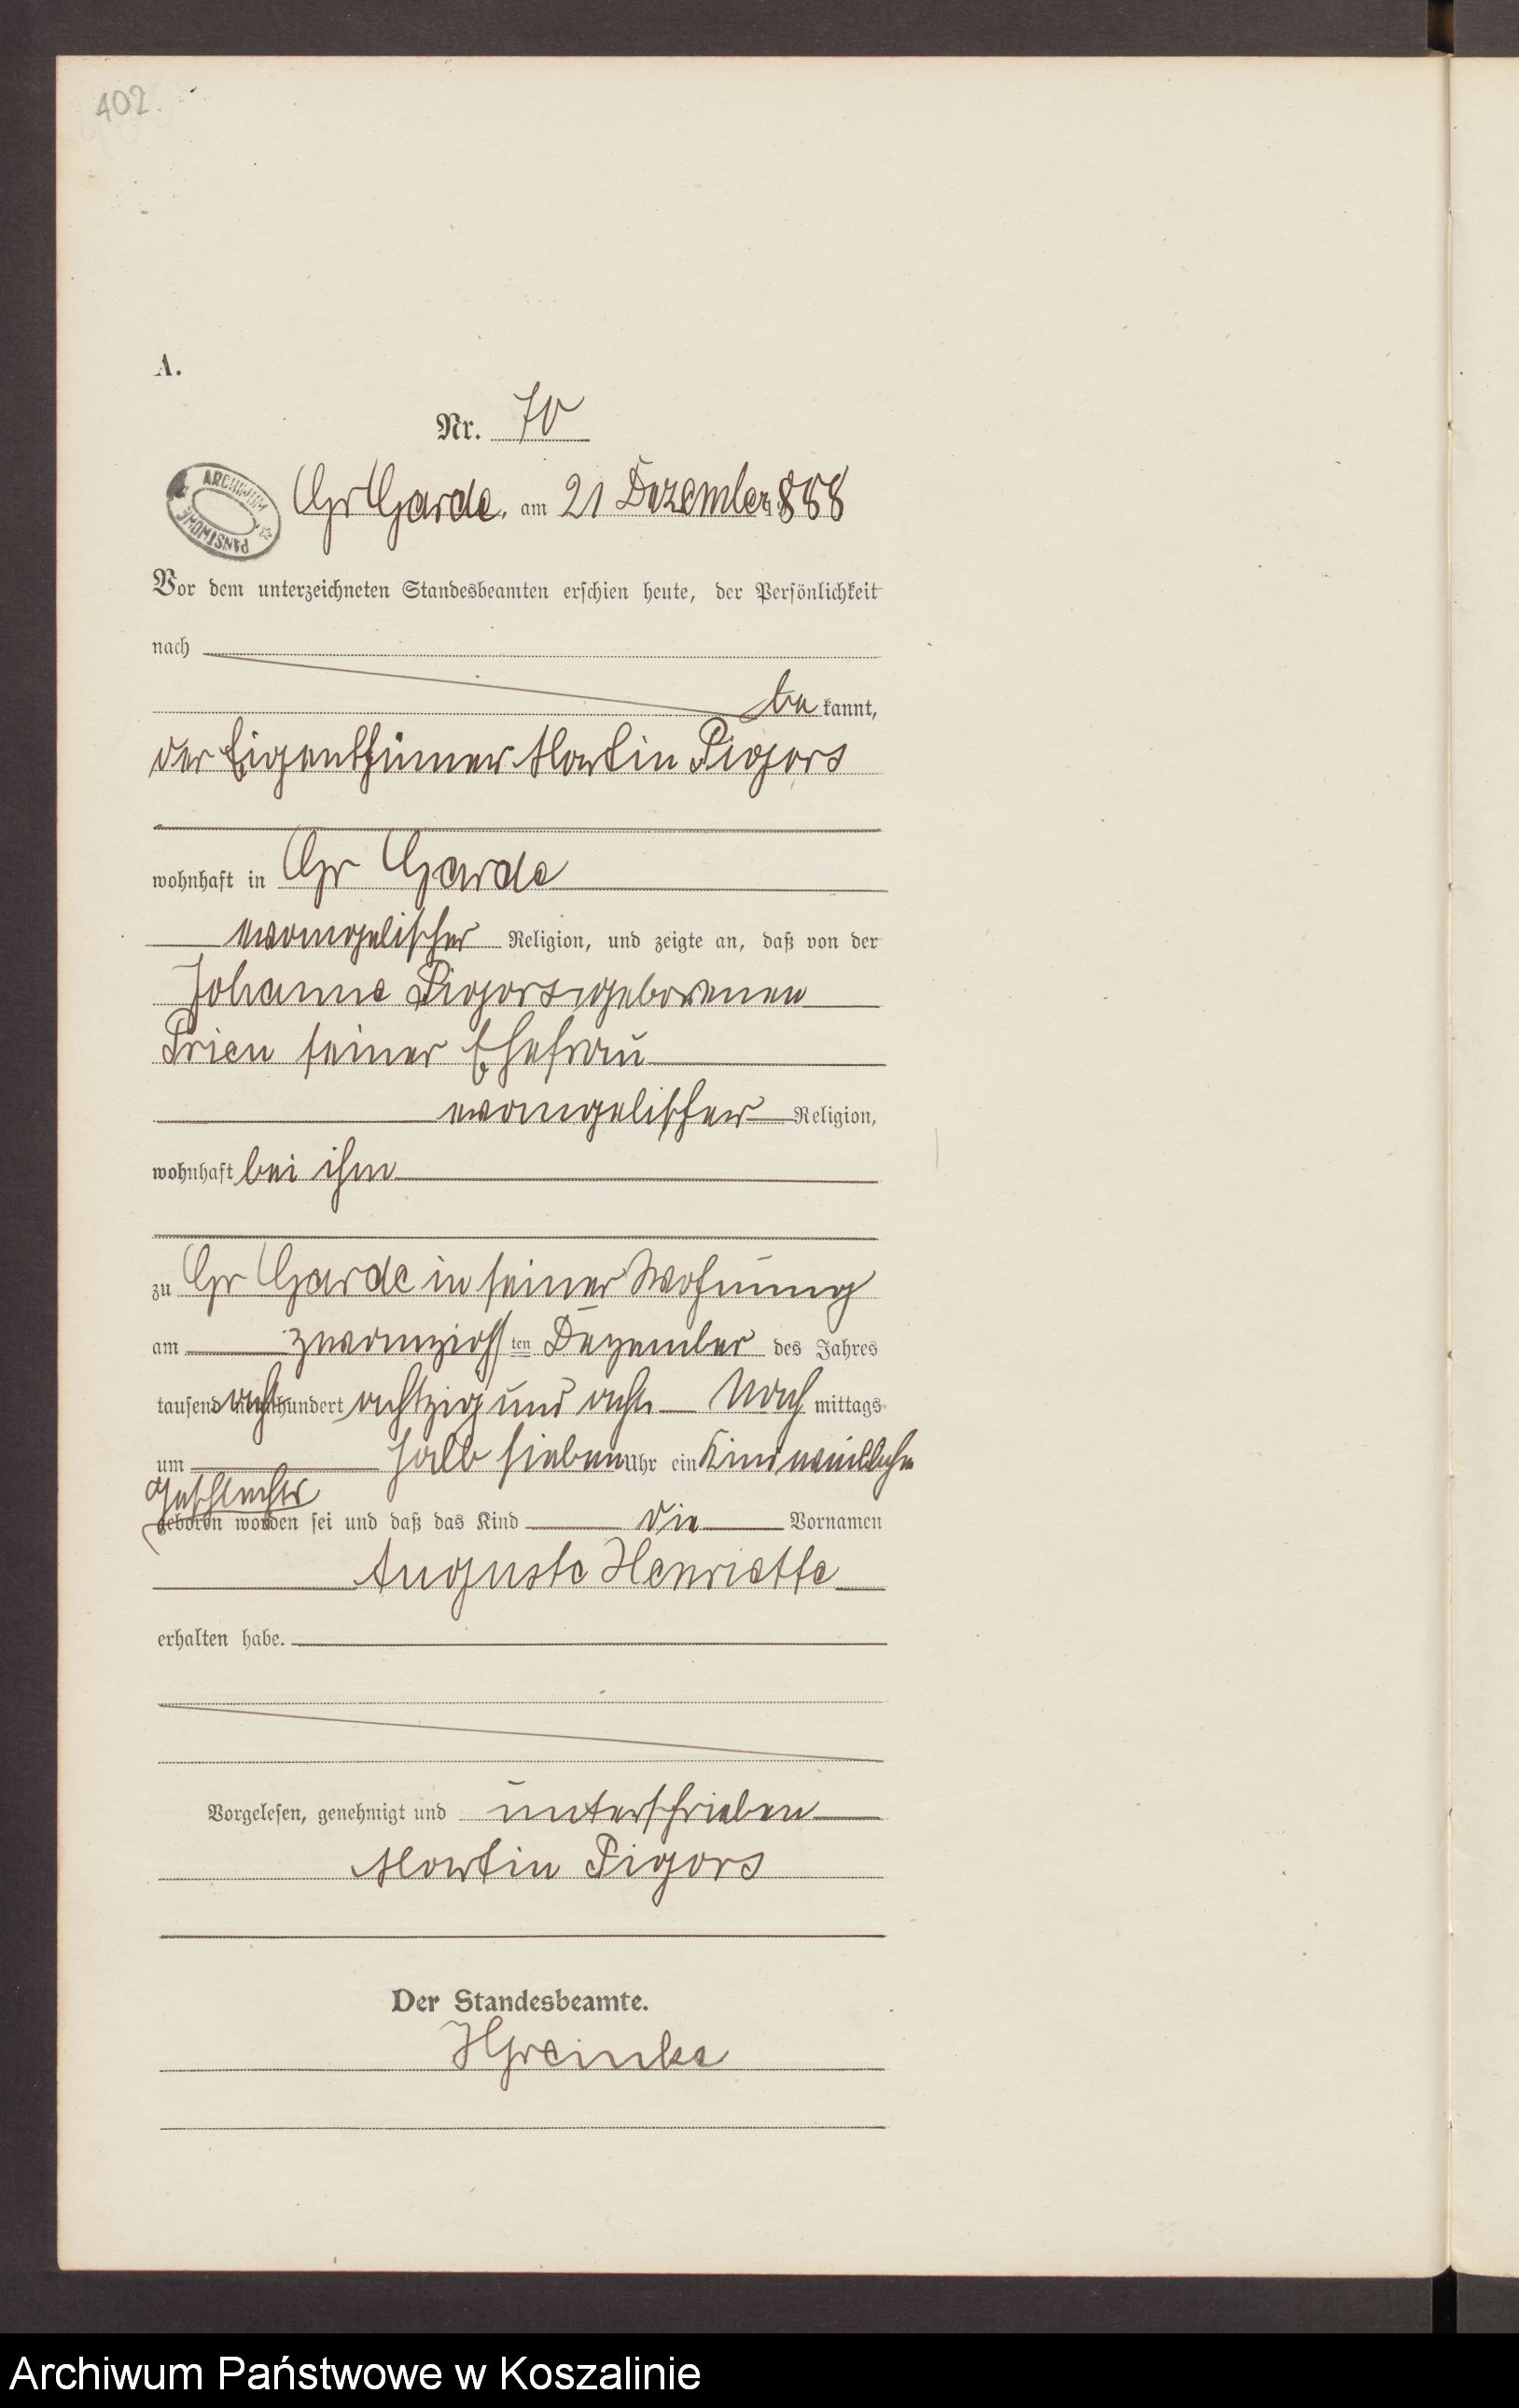 402.
A.
Nr. 70
ARCHIWUM PAŃSTWOWE
Gr Garde, am 21 Dezember 1888
Vor dem unterzeichneten Standesbeamten erschien heute, der Persönlichkeit
nach
be kannt,
der Eigenthümer Martin Pigors
wohnhaft in Gr Garde
evangelischer Religion, und zeigte an, daß von der
Johanne Pigors, geborenen
Prien seiner Ehefrau
evangelischer Religion,
wohnhaft bei ihm
zu Gr Garde in seiner Wohnung
am zwanzigsten Dezember des Jahres
tausend achthundert achtzig und acht Nach mittags
um halb sieben Uhr ein Kind weiblichen
Geschlechts
geboren worden sei und daß das Kind die Vornamen
Auguste Henriette
erhalten habe.
Vorgelesen, genehmigt und unterschrieben
Martin Pigors
Der Standesbeamte.
HGreinke
Archiwum Państwowe w Koszalinie